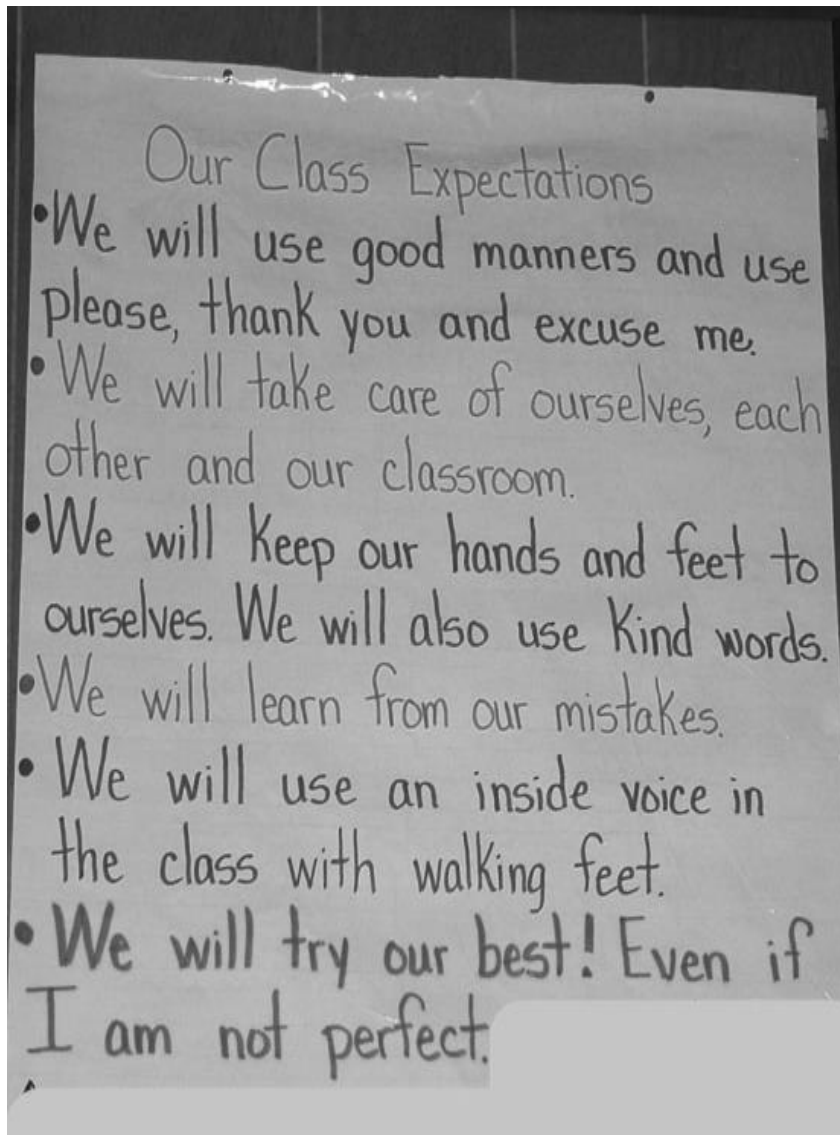 Our Class Expectations
•We will use good manners and use
please, thank you and excuse me.
•We will take care of ourselves, each
other and our classroom.
•We will keep our hands and feet to
ourselves. We will also use kind words.
•We will learn from our mistakes.
• We will use an inside voice in
the class with walking feet.
• We will try our best! Even if
I am not perfect.